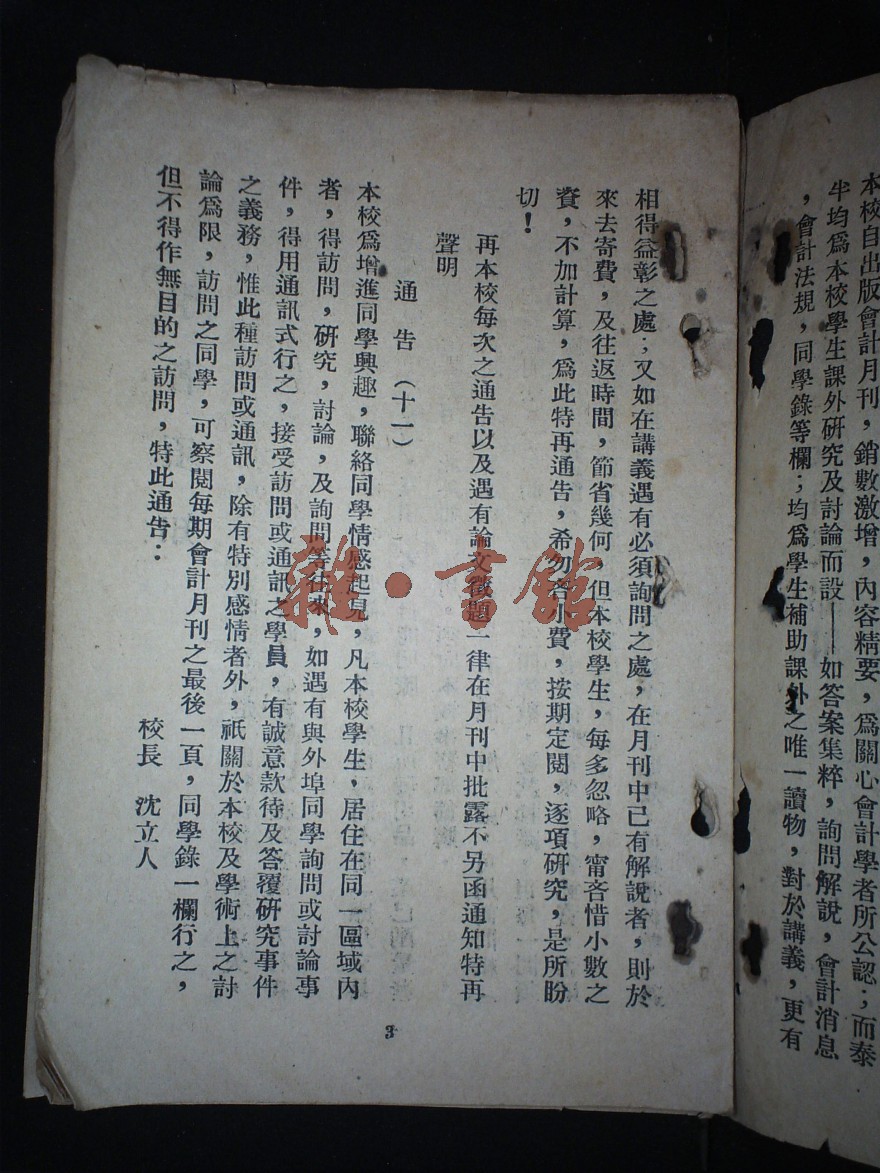 本校自出版會計月刊，銷數激增，內容精要，爲關心會計學者所公認；而泰
半均爲本校學生課外研究及討論而設——如答案集粹，詢問解說，會計消息
，會計法規，同學錄等欄；均爲學生補助課外之唯一讀物，對於講義，更有
相得益彰之處；又如在講義遇有必須詢問之處，在月刊中已有解說者，則於
來去寄費，及往返時間，節省幾何，但本校學生，每多忽略，甯吝惜小數之
費，不加計算，爲此特再通告，希勿吝小費，按期定閱，逐項研究，是所盼
切！
再本校每次之通告以及遇有論文徵題一律在月刊中批露不另函通知特再
聲明
通告（十一）
本校爲增進同學興趣，聯絡同學情感起見，凡本校學生，居住在同一區域內
者，得訪問，研究，討論，及詢問等往來，如遇有與外埠同學詢問或討論事
件，得用通訊式行之，接受訪問或通訊之學員，有誠意款待及答覆研究事件
之義務，惟此種訪問或通訊，除有特別感情者外，祇關於本校及學術上之討
論爲限，訪問之同學，可察閱每期會計月刊之最後一頁，同學錄一欄行之，
但不得作無目的之訪問，特此通告：
校長 沈立人
3
雜·書館